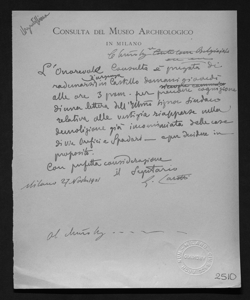 CONSULTA DEL MUSEO ARCHEOLOGICO
IN MILANO
L'Onorevole Consulta è pregata di
radunarsi in Castello domani giovedì
alle ore 3 pom. per prendere cognizione
di una lettera dell' Signor Sindaco
relativa alle vestigia riapparse nella
demolizione già incominciata delle case
di via Orefici e Spadari e per decidere in
proposito.
Con perfetta considerazione
Milano 27
il Segretario
al
2510